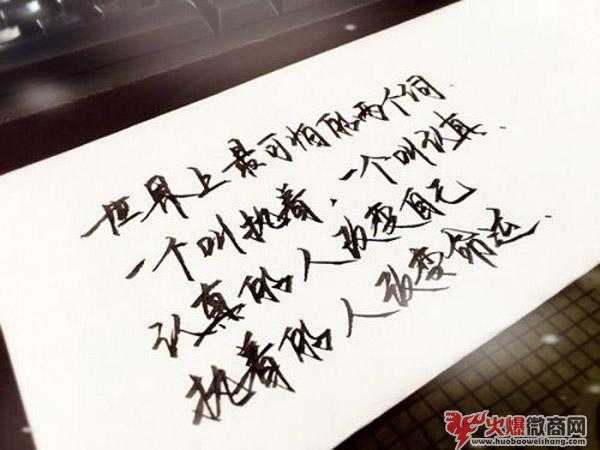 世界上最可怕的两个词
一个叫执着，一个叫认真
认真的人改变自己
执着的人改变命运.
火爆微商网
www.huobaoweishang.com